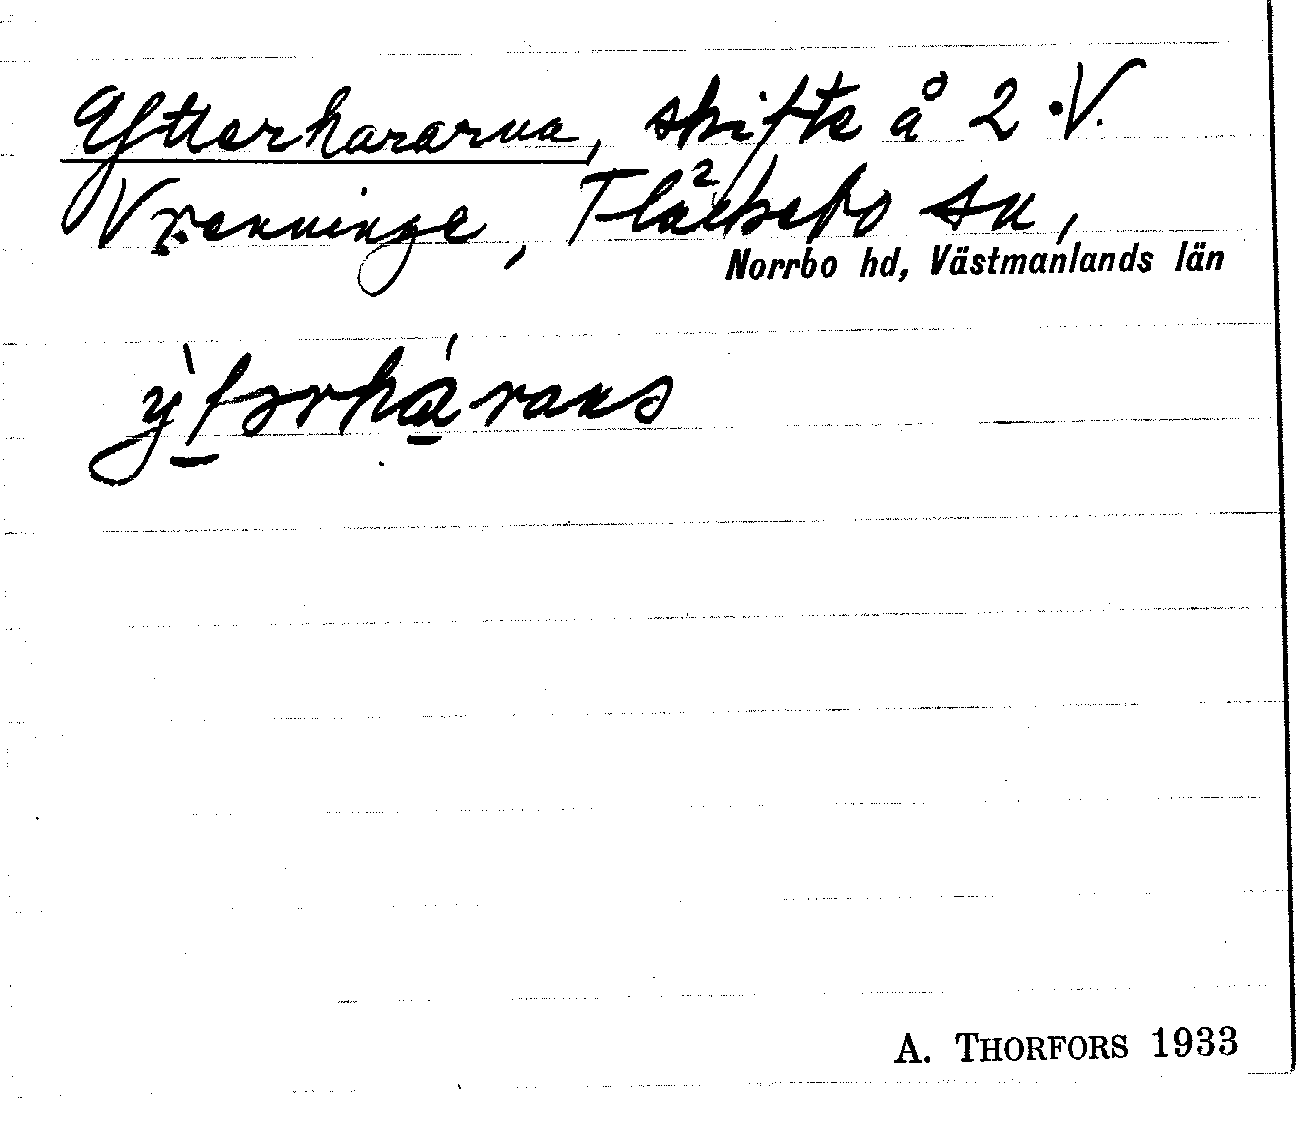 Efterhararna, skifte å 2 V.
Vrenninge, Fläckebo sn,
Norrbo hd, Västmanlands län
A. THORFORS 1933